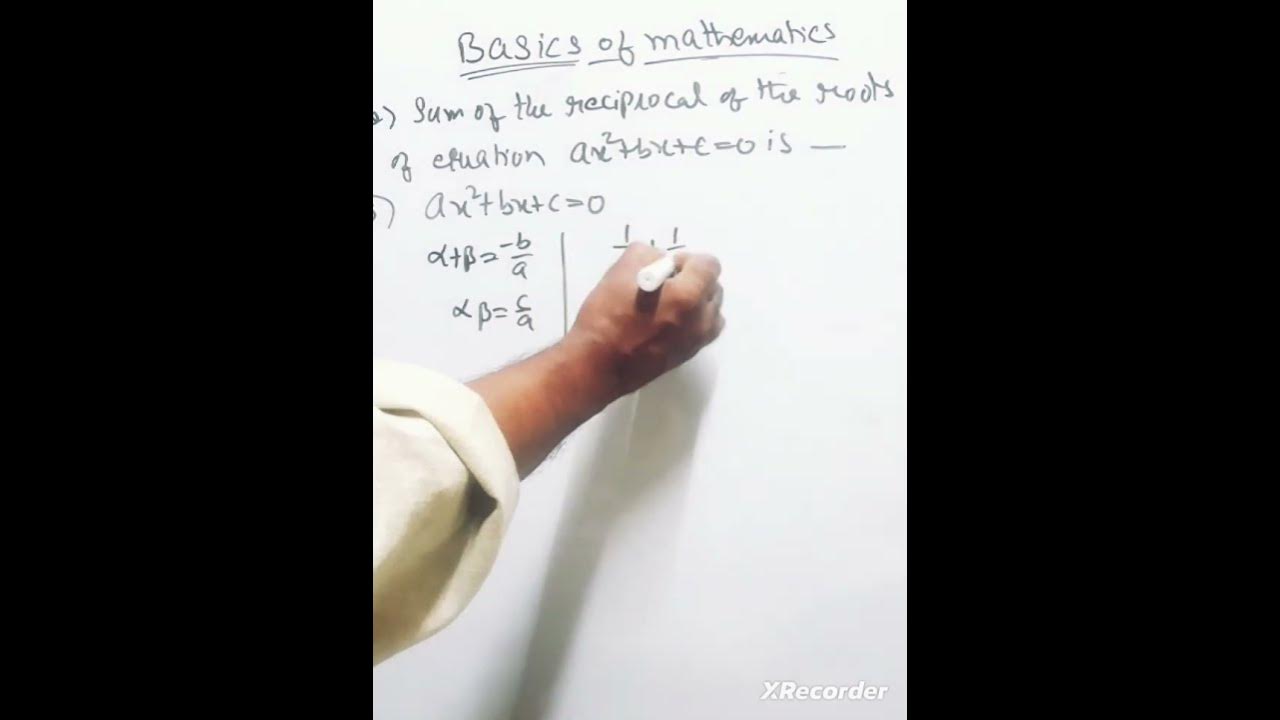 Basics of mathematics
) Sum of the reciprocal of the roots
of equation ax²+bx+c=0 is —
) ax²+bx+c=0
α+β=-b/a
αβ=c/a
1 1
XRecorder